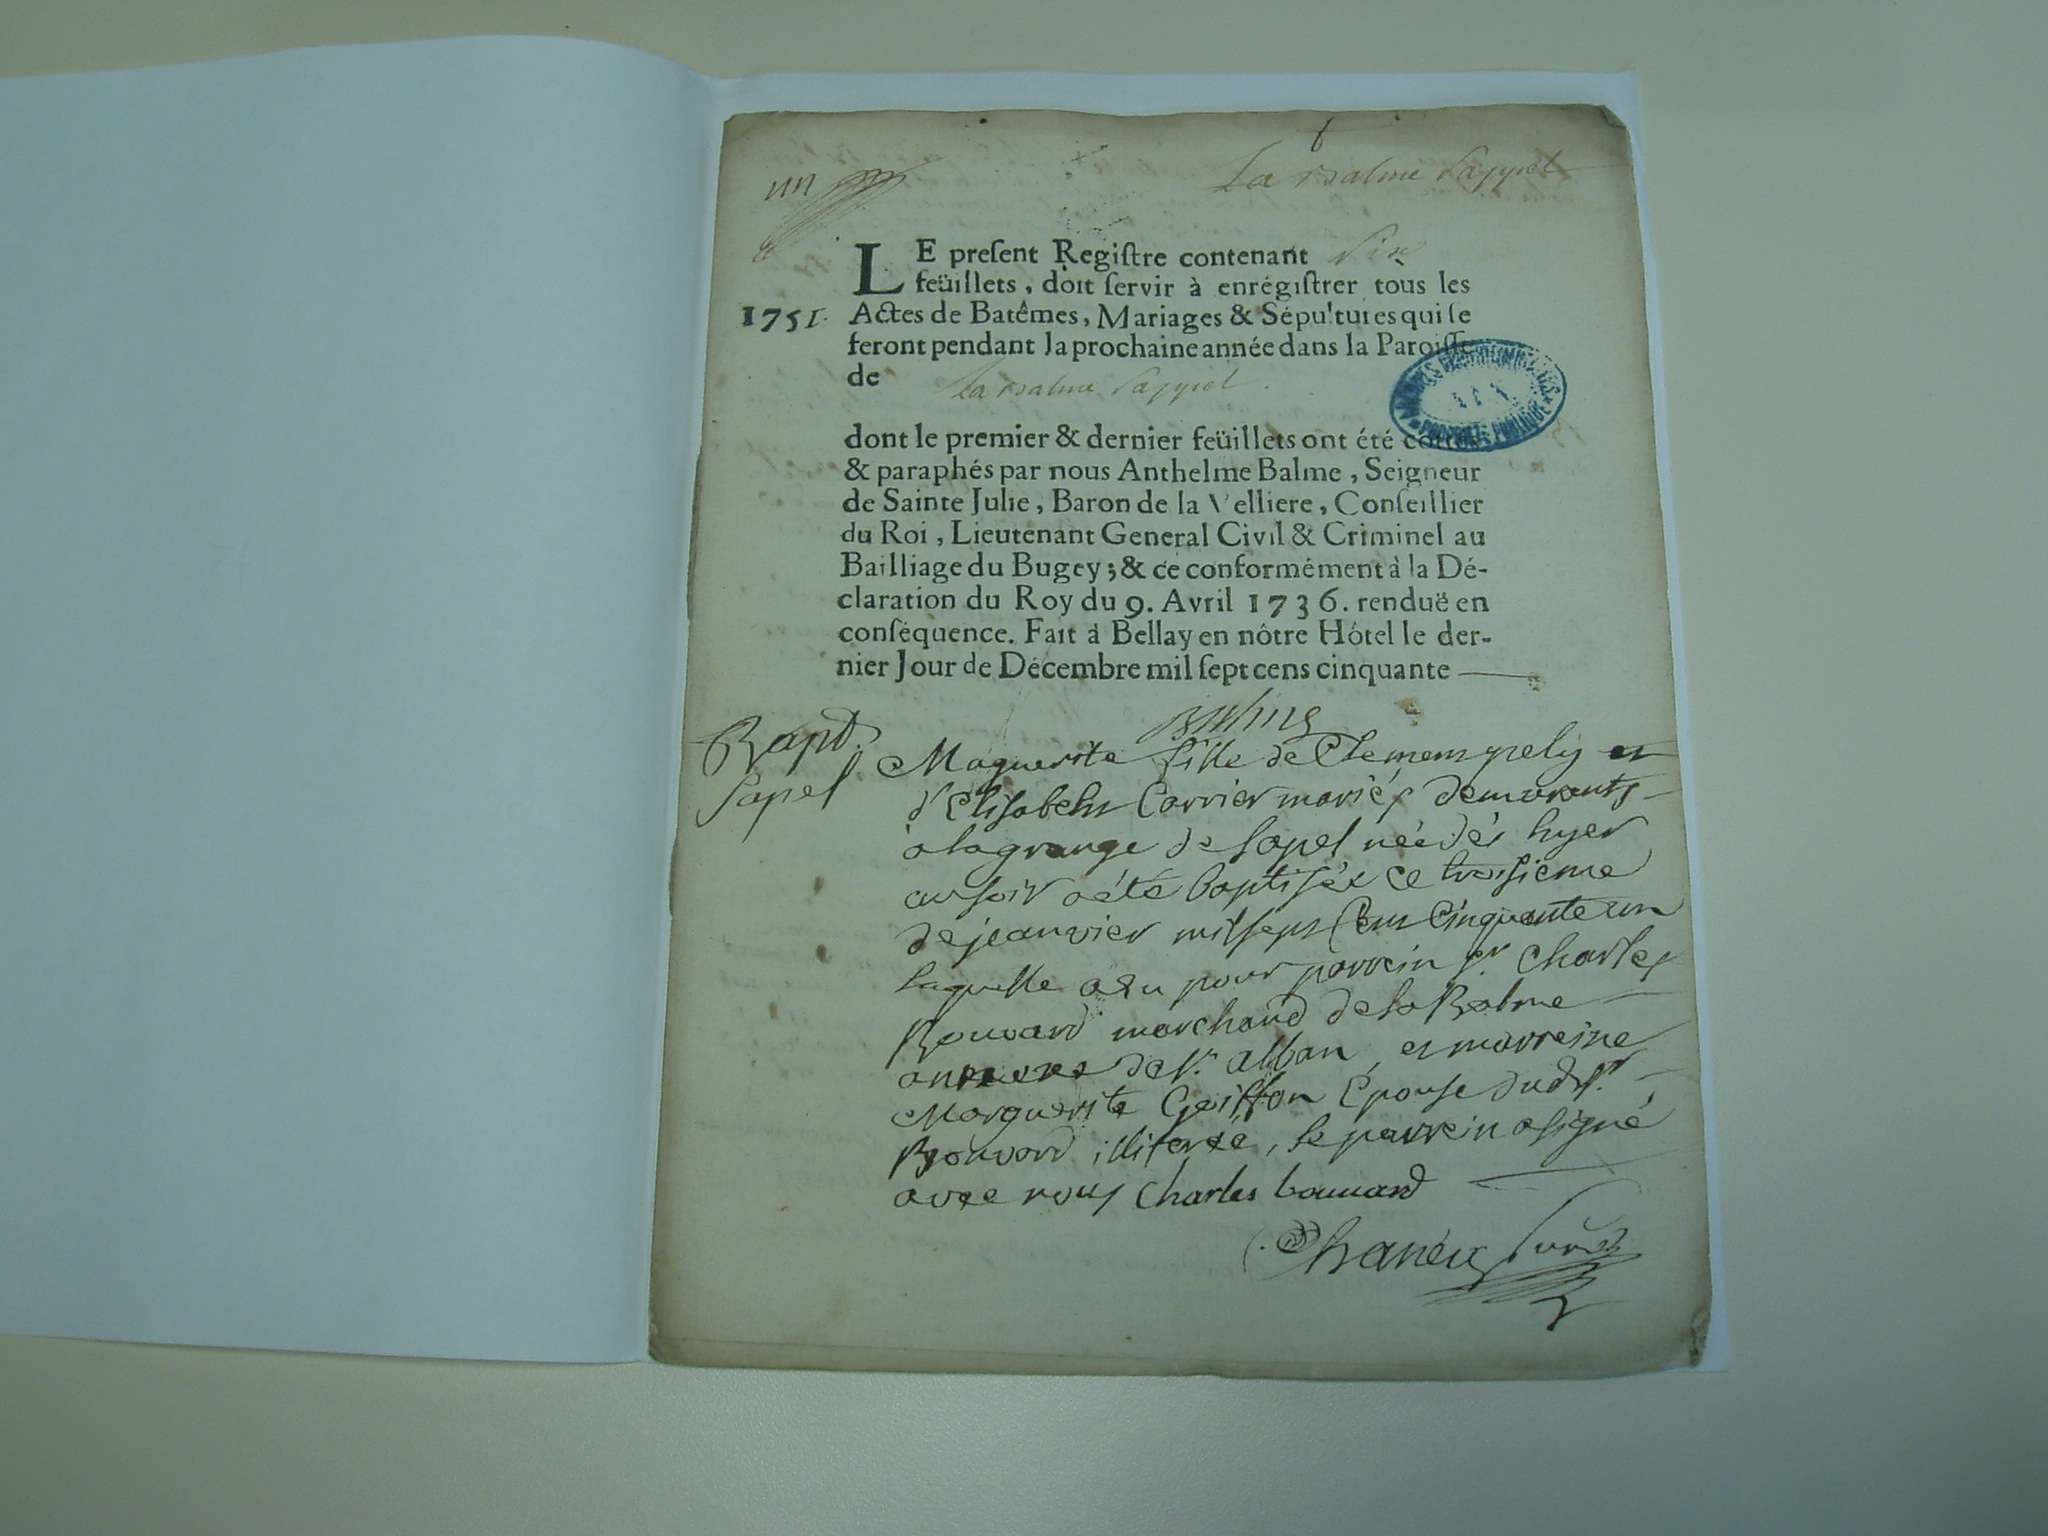 un
La balme Sappel
LE preſent Regiſtre contenant Six
feüillets, doit ſervir à enrégiſtrer tous les
1751. Actes de Batêmes, Mariages & Sépultures qui ſe
feront pendant la prochaine année dans la Paroiſſe
de La balme Sappel.
dont le premier & dernier feüillets ont été cottés
& paraphés par nous Anthelme Balme, Seigneur
de Sainte Julie, Baron de la Velliere, Conſeillier
du Roi, Lieutenant General Civil & Criminel au
Bailliage du Bugey; & ce conformément à la Dé-
claration du Roy du 9. Avril 1736. renduë en
conſéquence. Fait à Bellay en nôtre Hôtel le der-
nier Jour de Décembre mil ſept cens cinquante
Balme
Bapt.
Sapel
Maguerite fille de Clemens et
d'Elisabeht Carrier mariés demeurants
a la grange de Sapel née dés hyer
au soir a été baptisée ce troisieme
de jeanvier mil sept cens cinquante un
laquelle a eu pour parrein sr. Charles
Bouvard marchand de la Balme
de st. alban, et marreine
Marguerite Goiffon Epouse dudt sr.
Bouvard illiterée, le parrein a signé
avec nous Charles bouuard
curé
ARCHIVES DÉPARTEMENTALES
AIN
PROPRIÉTÉ PUBLIQUE